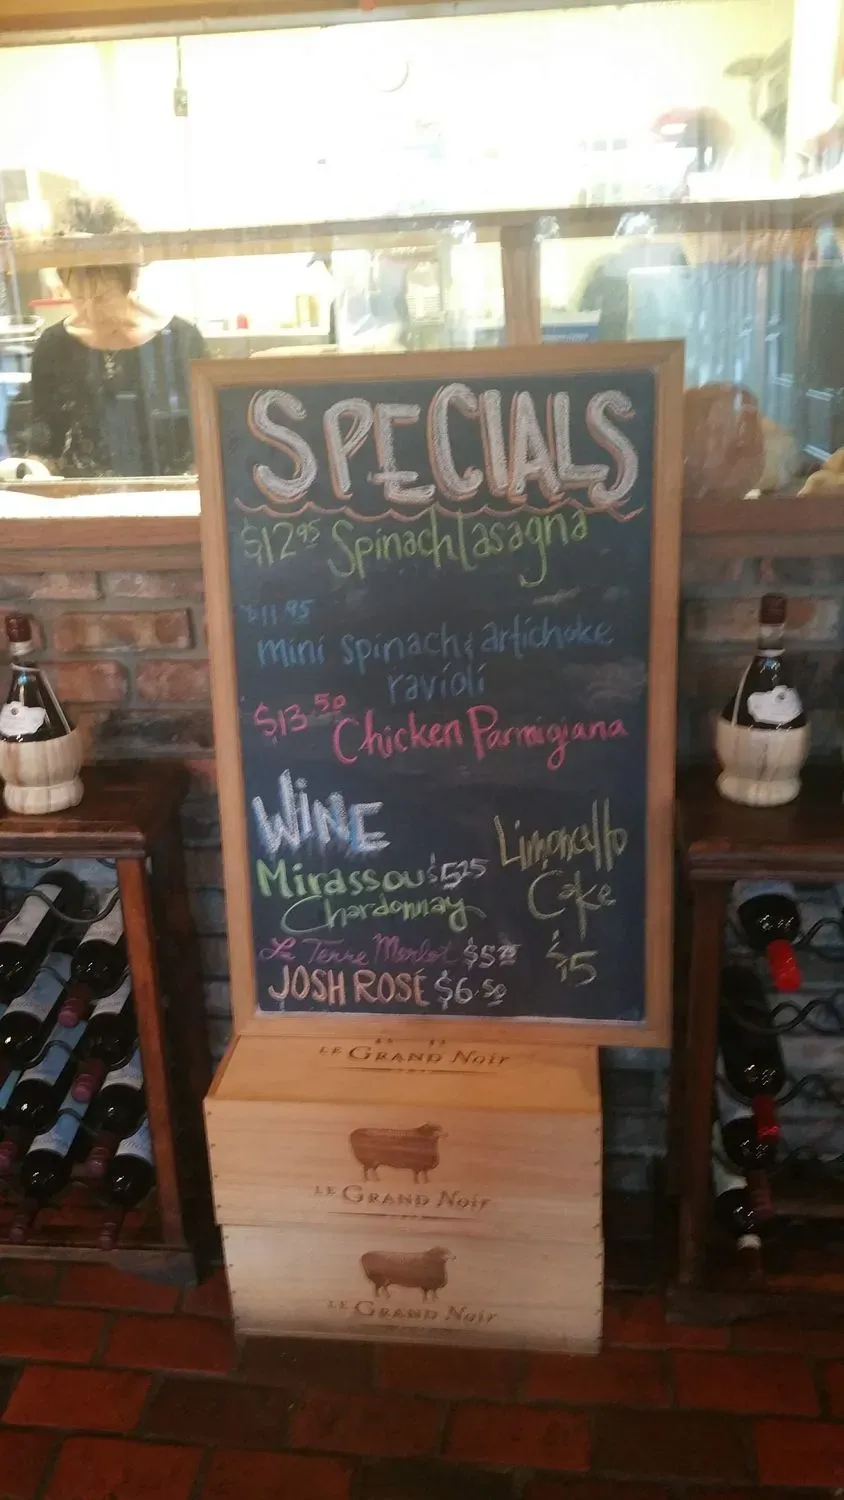 SPECIALS
$12.95 Spinach Lasagna
$11.95
mini spinach & artichoke
ravioli
$13.50 Chicken Parmigiana
WINE
Mirassou $5.25
Chardonnay
La Terre Merlot $5.25
JOSH ROSÉ $6.50
Limoncello
Cake
$5
LE GRAND NOIR
LE GRAND NOIR
LE GRAND NOIR